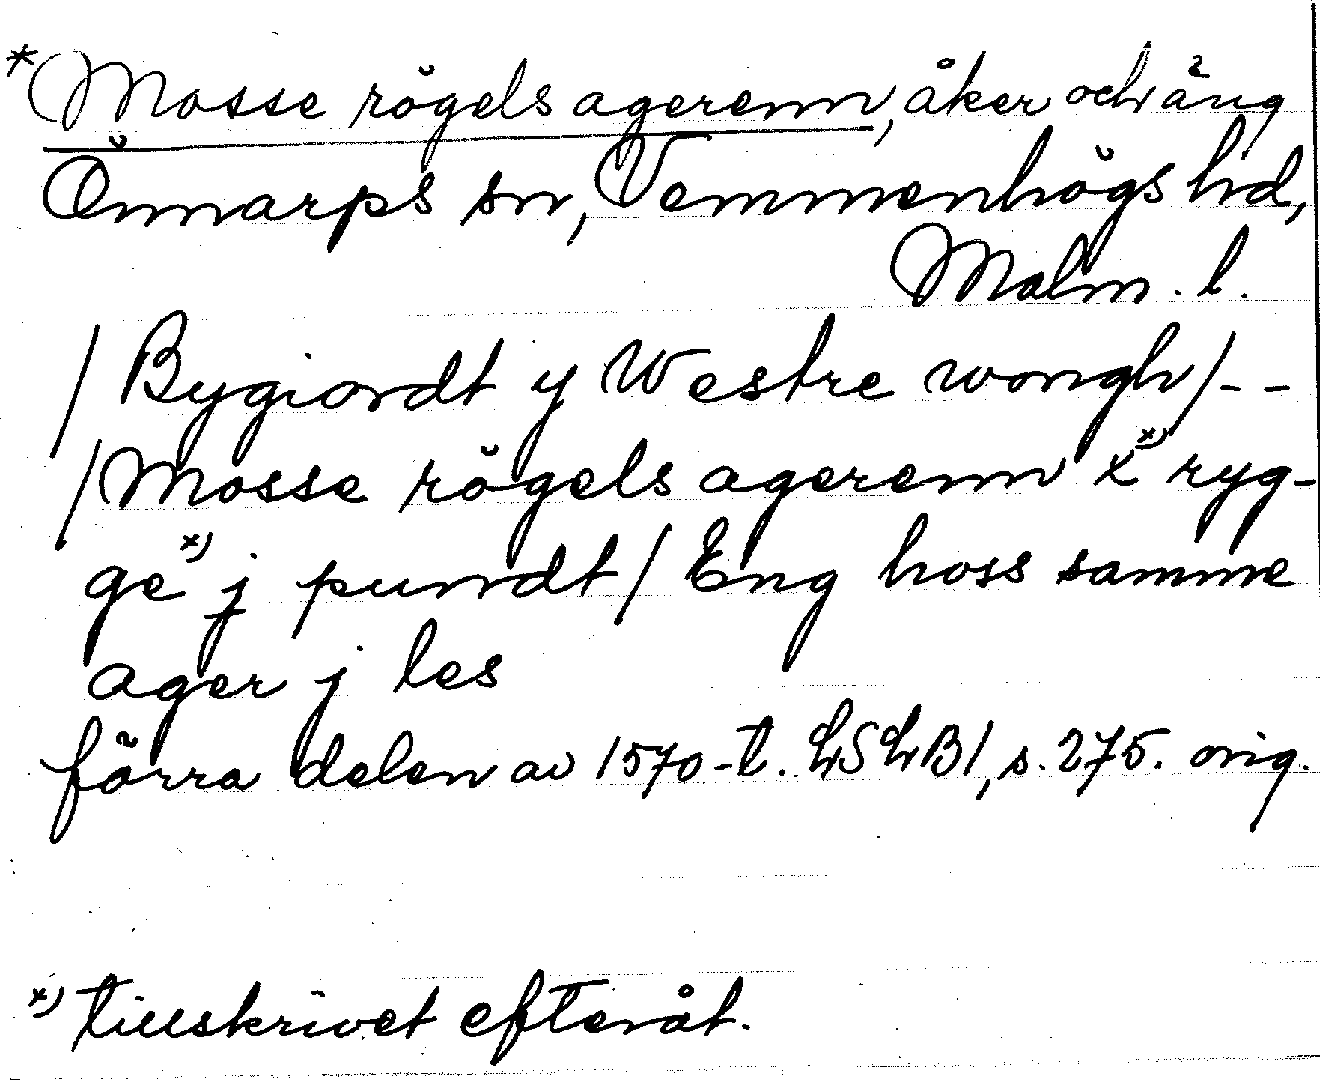 *Mosse rögels agerenn, åker och äng
Önnarps sn, Vemmenhögs hd,
Malm. l.
/ Bygiordt y Westre wongh/--
/Mosse rögels agerenn x x) ryg-
ge x) j pundt / Eng hoss samme
ager j les
förra delen av 1570-t. LSLB1, s. 275. orig.
x) tillskrivet efteråt.